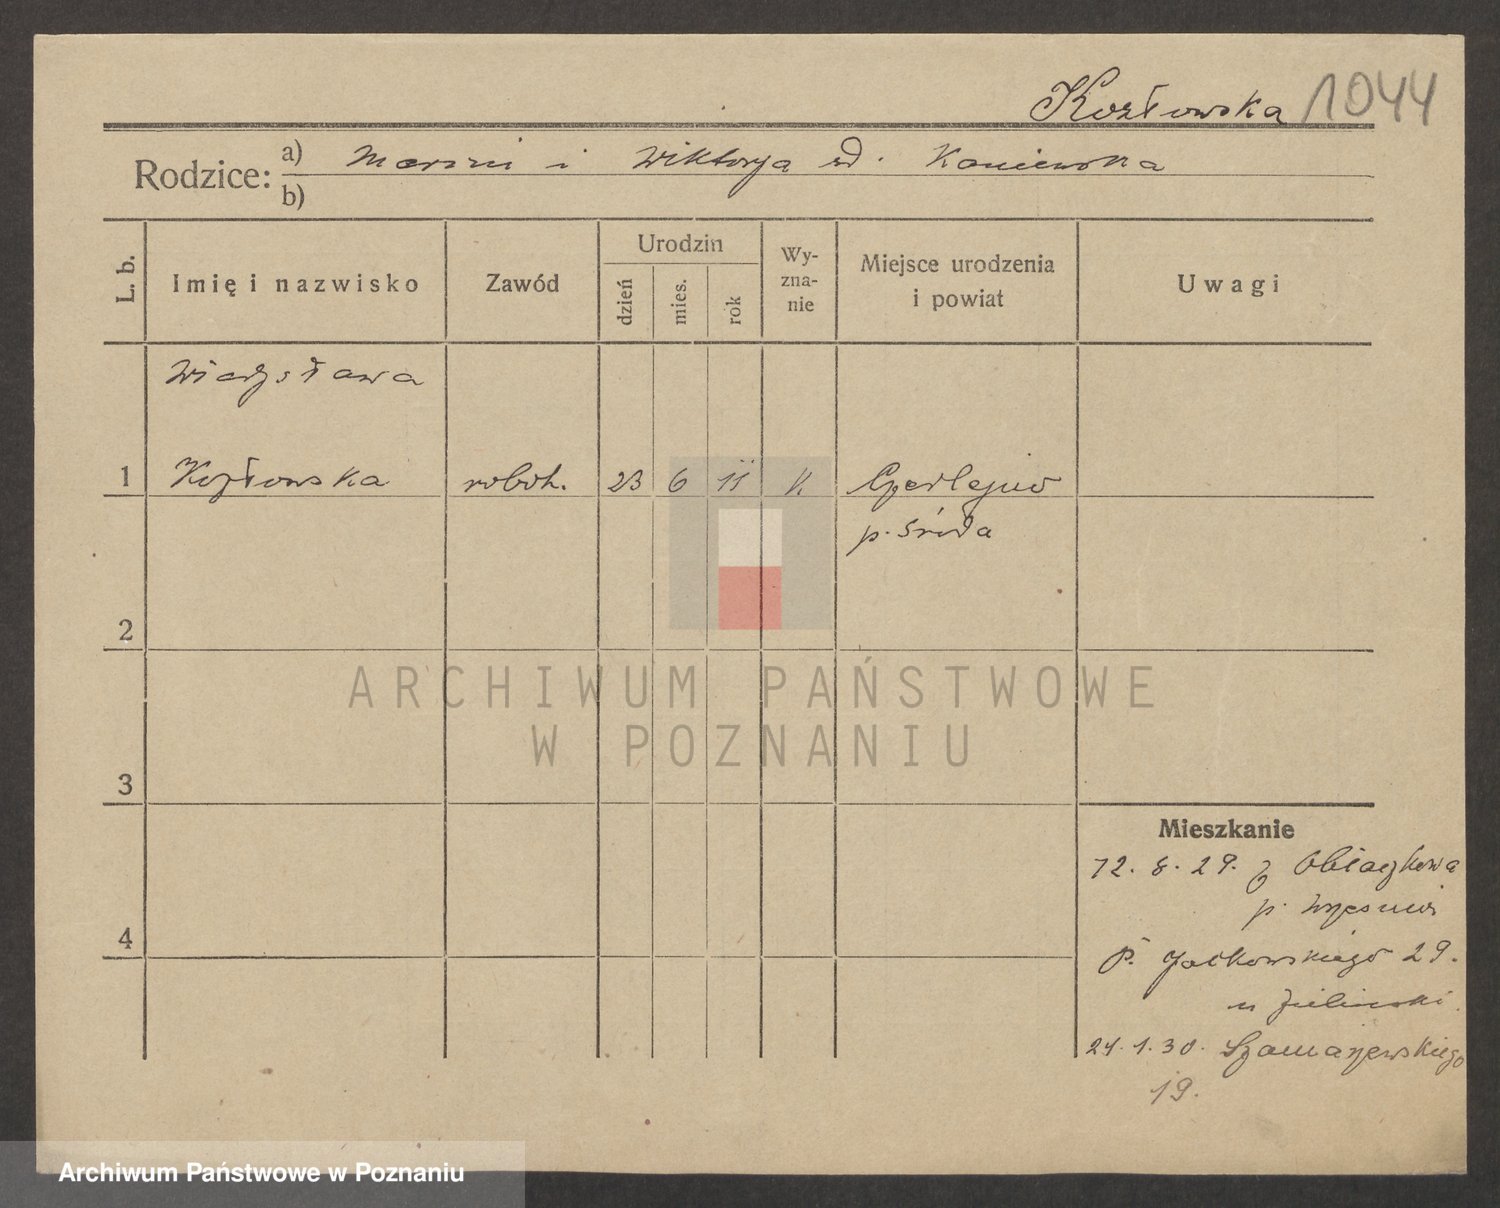 Kozłowska 1044
Rodzice: a) Marcin i Wiktorja ud. Kaniewska
b)
L. b.
Imię i nazwisko
Zawód
Urodzin
dzień
mies.
rok
Wy-
zna-
nie
Miejsce urodzenia
i powiat
Uwagi
Władysława
1 Kozłowska robot. 23 6 11 k.
p. Środa
2
ARCHIWUM PAŃSTWOWE
W POZNANIU
3
Mieszkanie
12. 8. 29. z Obłaczkowa
p. Września
4
P. Jackowskiego 29.
u Zielinski.
24. 1. 30. Szamarzewskiego
19.
Archiwum Państwowe w Poznaniu